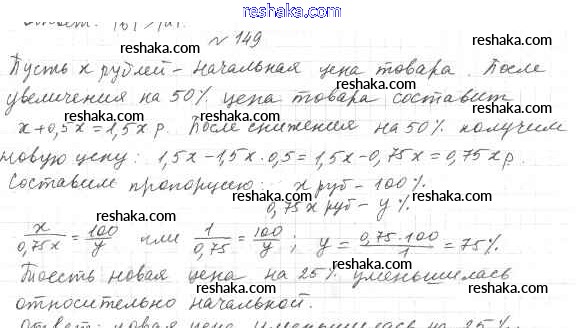 reshaka.com
reshaka.com
№ 149
reshaka.com
Пусть x рублей – начальная цена товара. После
reshaka.com reshaka.com
увеличения на 50% цена товара составит
reshaka.com
x+0,5x=1,5x р. После снижения на 50% получим
reshaka.com reshaka.com
новую цену: 1,5x – 1,5x · 0,5 = 1,5x – 0,75x = 0,75x р.
reshaka.com
Составим пропорцию: x руб – 100%
reshaka.com reshaka.com
0,75x руб – y%
reshaka.com
x/0,75x = 100/y или 1/0,75 = 100/y; y = 0,75·100/1 = 75%.
reshaka.com reshaka.com
Тоесть новая цена на 25% уменьшилась
reshaka.com
относительно начальной.
reshaka.com reshaka.com
Ответ: новая цена уменьшилась на 25%.